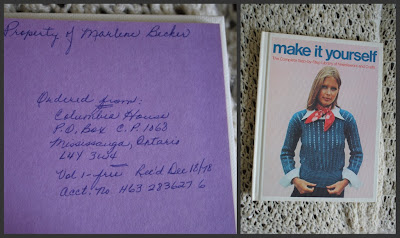 Property of Marlene Becker
Ordered from:
Columbia House
P.O. Box C.P. 1063
Mississauga, Ontario
L4Y 3W4
Vol 1-free Rec'd Dec 18/78
Acct. No. H63 283627 6
make it yourself
The Complete Step-by-Step Library of Needlework and Crafts